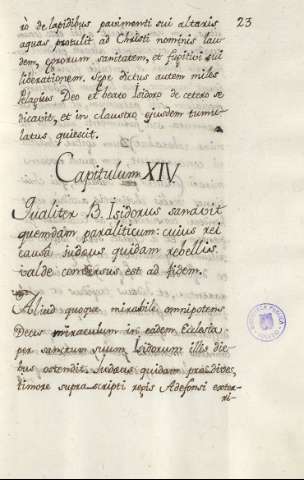 23
rò de lapidibus pavimenti sui altaris
aquas protulit ad Christi nominis lau-
dem, egrorum sanitatem, et fugitivi sui
liberationem. Sepe dictus autem miles
Pelagius Deo et beato Isidoro de cetero se
dicavit, et in claustro ejusdem tumu-
latus quiescit.
Capitulum XIV.
Qualiter B. Isidorus sanavit
quemdam paraliticum: cuius rei
causa Judæus quidam rebellis
valde conversus est ad fidem.
Aliud quoque mirabile omnipotens
Deus miraculum in eadem Ecclesia
per sanctum suum Isidorum illis die-
bus ostendit. Judæus quidam prædives,
timore supra scripti regis Adefonsi exter-
ri-